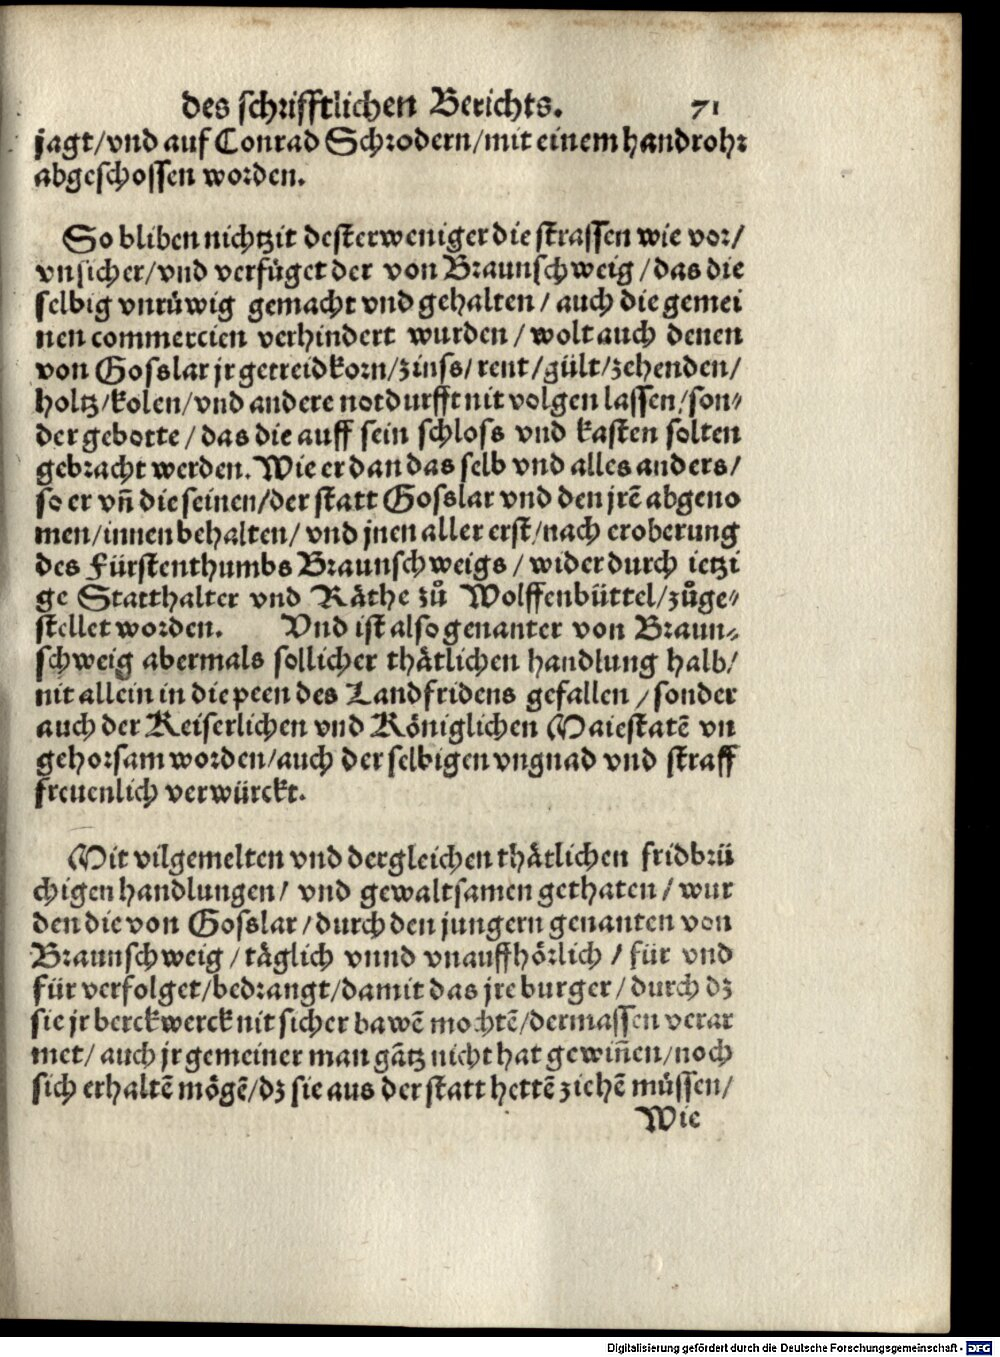 des schrifftlichen Berichts. 71
jagt/vnd auf Conrad Schrodern/mit einem handrohr
abgeschossen worden.
So bliben nichtzit desterweniger die strassen wie vor/
vnsicher/vnd verfüget der von Braunschweig/das die
selbig vnrüwig gemacht vnd gehalten/auch die gemei
nen commercien verhindert wurden/wolt auch denen
von Gosslar jr getreidkorn/zinss/rent/gült/zehenden/
holtz/kolen/vnd andere notdurfft nit volgen lassen/son⸗
der gebotte/das die auff sein schloss vnd kasten solten
gebracht werden. Wie er dan das selb vnd alles anders/
so er vn̄ die seinen/der statt Gosslar vnd den jrē abgeno
men/innenbehalten/vnd jnen aller erst/nach eroberung
des Fürstenthumbs Braunschweigs/widerdurch ietzi
ge Statthalter vnd Räthe zů Wolffenbüttel/zůge⸗
stellet worden. Vnd ist also genanter von Braun⸗
schweig abermals sollicher thätlichen handlung halb/
nit allein in die peen des Landfridens gefallen/sonder
auch der Keiserlichen vnd Königlichen Maiestatē vn
gehorsam worden/auch der selbigen vngnad vnd straff
freuenlich verwürckt.
Mit vilgemelten vnd dergleichen thätlichen fridbrü
chigen handlungen/vnd gewaltsamen gethaten/wur
den die von Gosslar/durch den jungern genanten von
Braunschweig/täglich vnnd vnauffhörlich/für vnd
für verfolget/bedrangt/damit das jre burger/durch dz
sie jr berckwerck nit sicher bawē mochtē/dermassen verar
met/auch jr gemeiner man gātz nicht hat gewiñen/noch
sich erhaltē mögē/dz sie aus der statt hettē ziehē müssen/
Wie
Digitalisierung gefördert durch die Deutsche Forschungsgemeinschaft - DFG